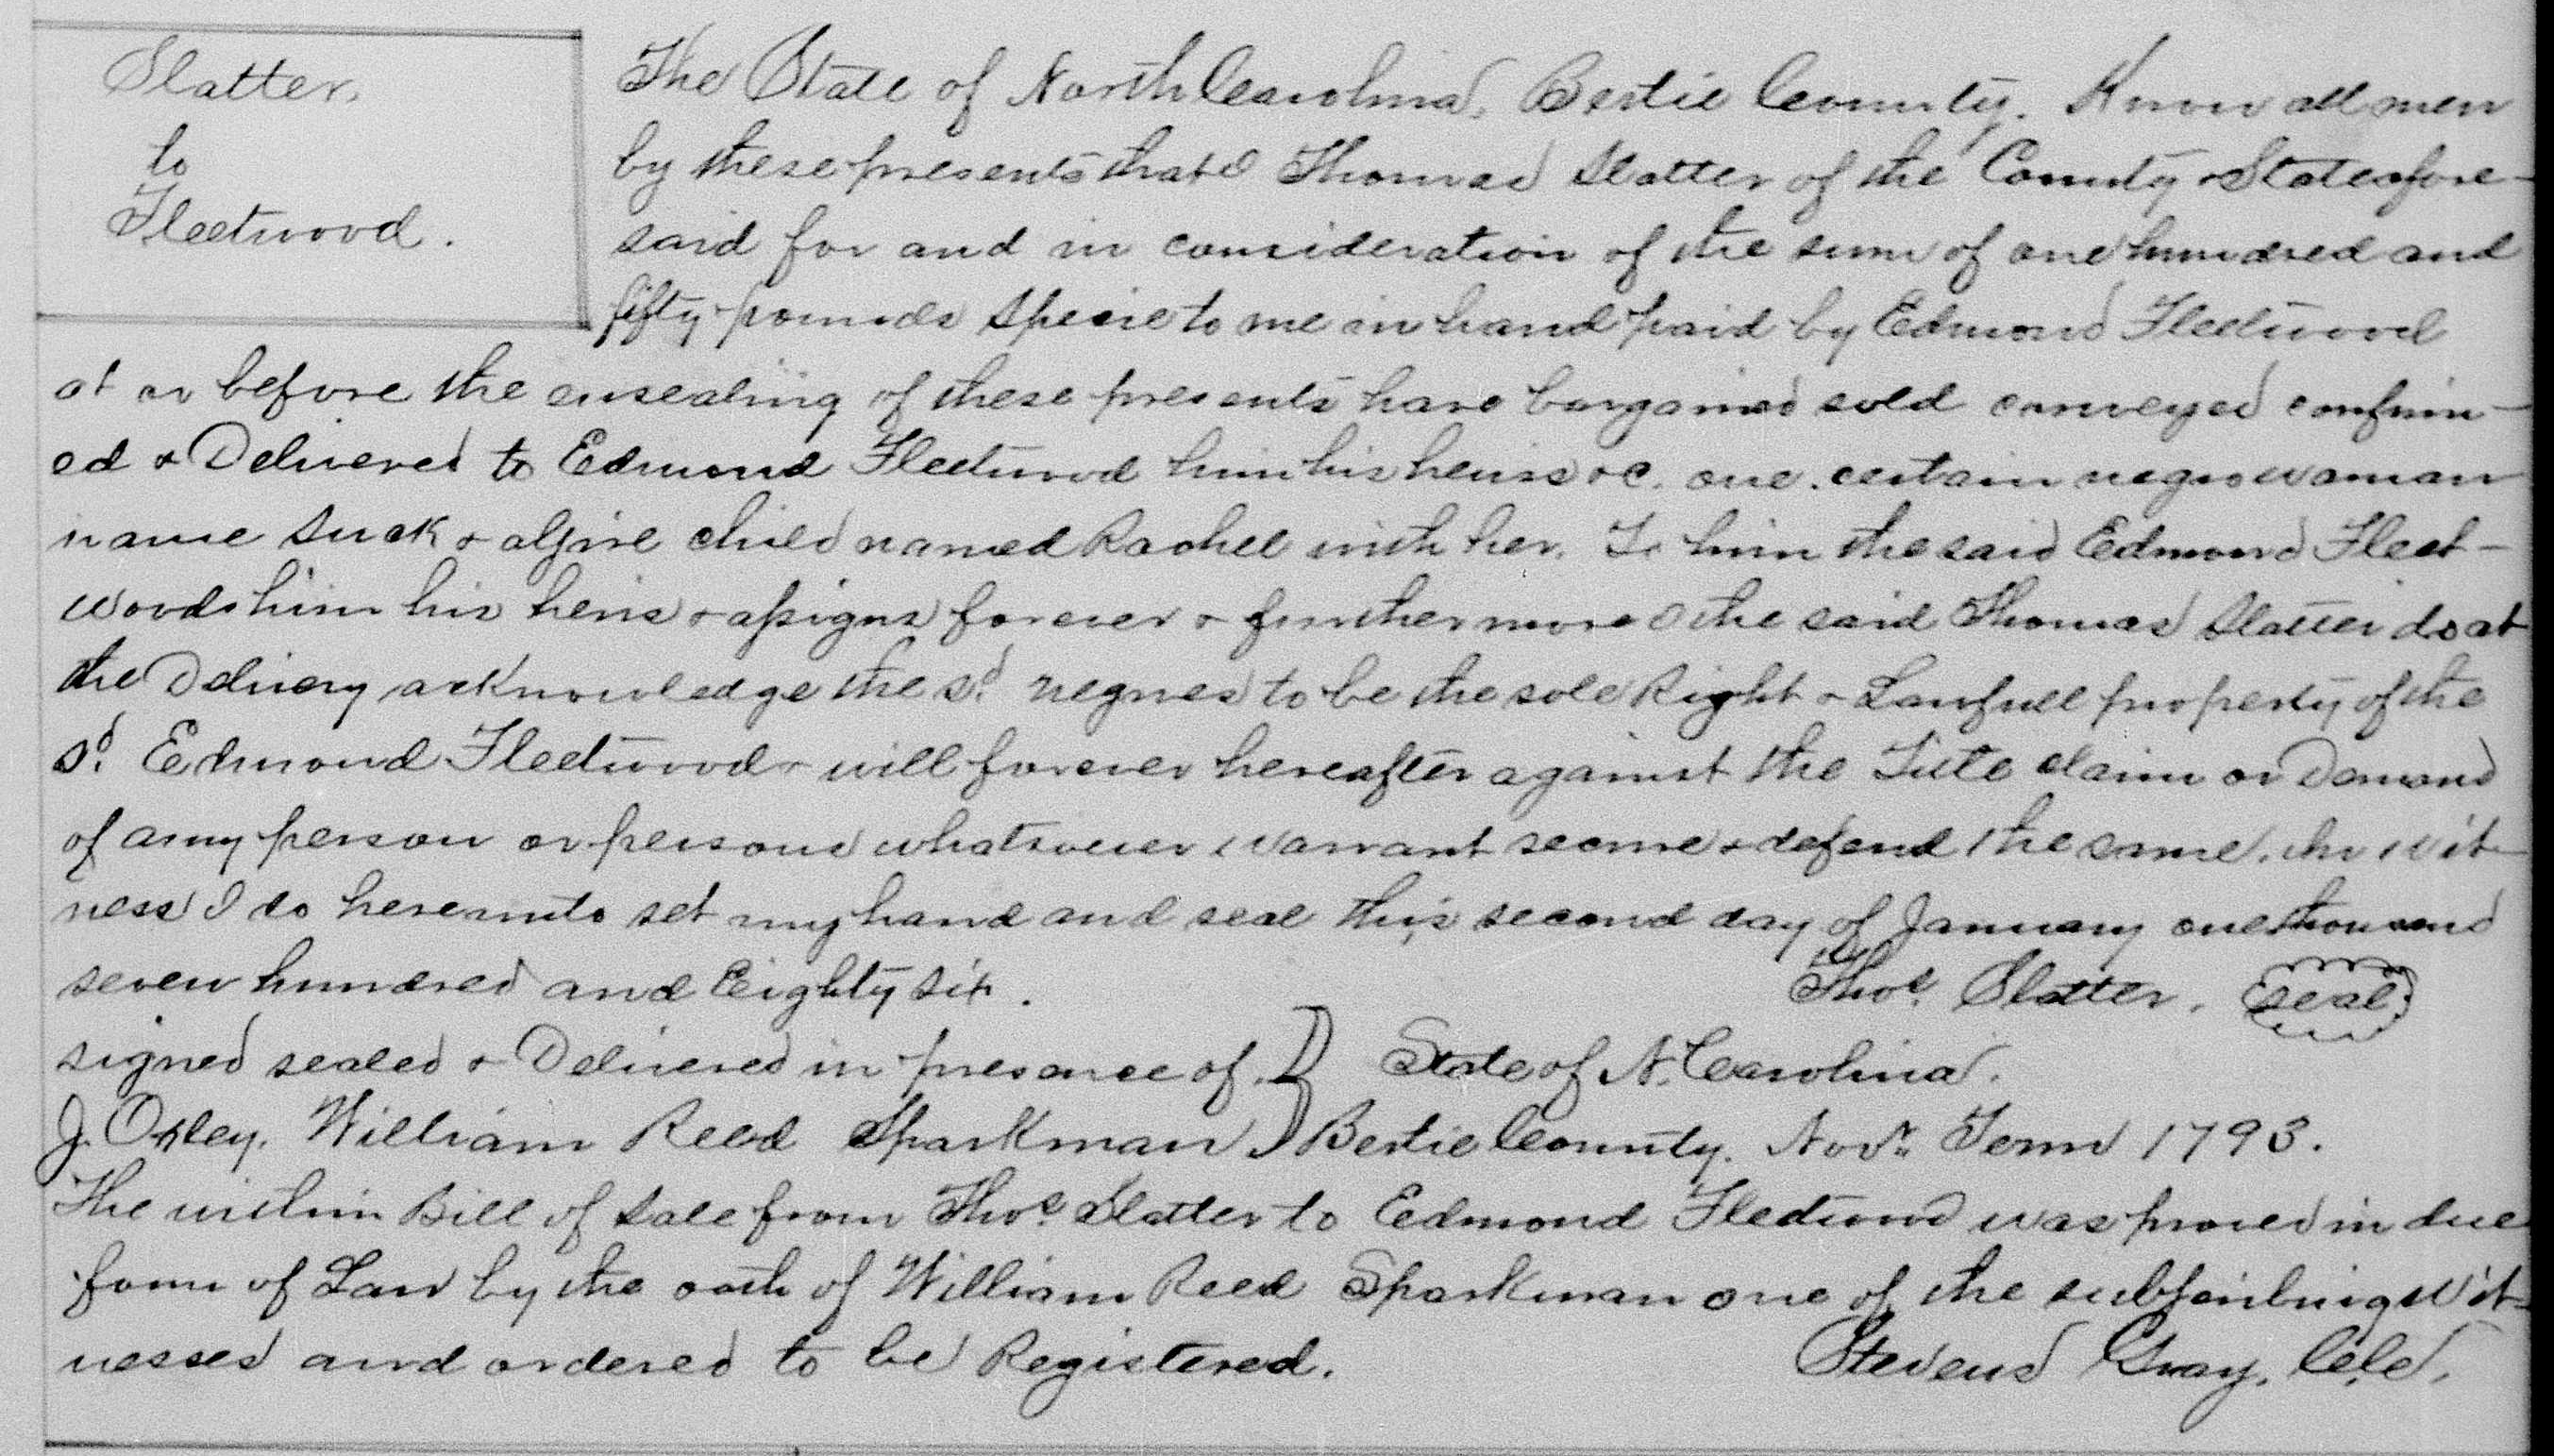 Slatter,
to
Fleetwood.
The State of North Carolina, Bertie County. Know all men
by these presents that I Thomas Slatter of the County & State afore-
said for and in consideration of the sum of one hundred and
fifty pounds Specie to me in hand paid by Edmond Fleetwood
at or before the ensealing of these presents have bargained sold conveyed confirm-
ed & Delivered to Edmond Fleetwood him his heirs &c. one certain negro woman
name Suck & a girl child named Rachel with her. To him the said Edmond Fleet-
wood him his heirs & assigns forever & furthermore I the said Thomas Slatter do at
the Delivery acknowledge the sd. negroes to be the sole Right & Lawfull property of the
sd. Edmond Fleetwood & will forever hereafter against the Title claim or Demand
of any person or persons whatsoever warrant secure & defend the same. In wit-
ness I do hereunto set my hand and seal this second day of January one thousand
seven hundred and Eighty six.
Thos. Slatter. seal
signed sealed & Delivered in presence of.
J. Oxley. William Reed Sparkman
State of N. Carolina.
Bertie County. Novr. Term 1793.
The within Bill of Sale from Thos. Slatter to Edmond Fleetwood was proved in due
form of Law by the oath of William Reed Sparkman one of the subscribing wit-
nesses and ordered to be Registered.
Stevens Gray,